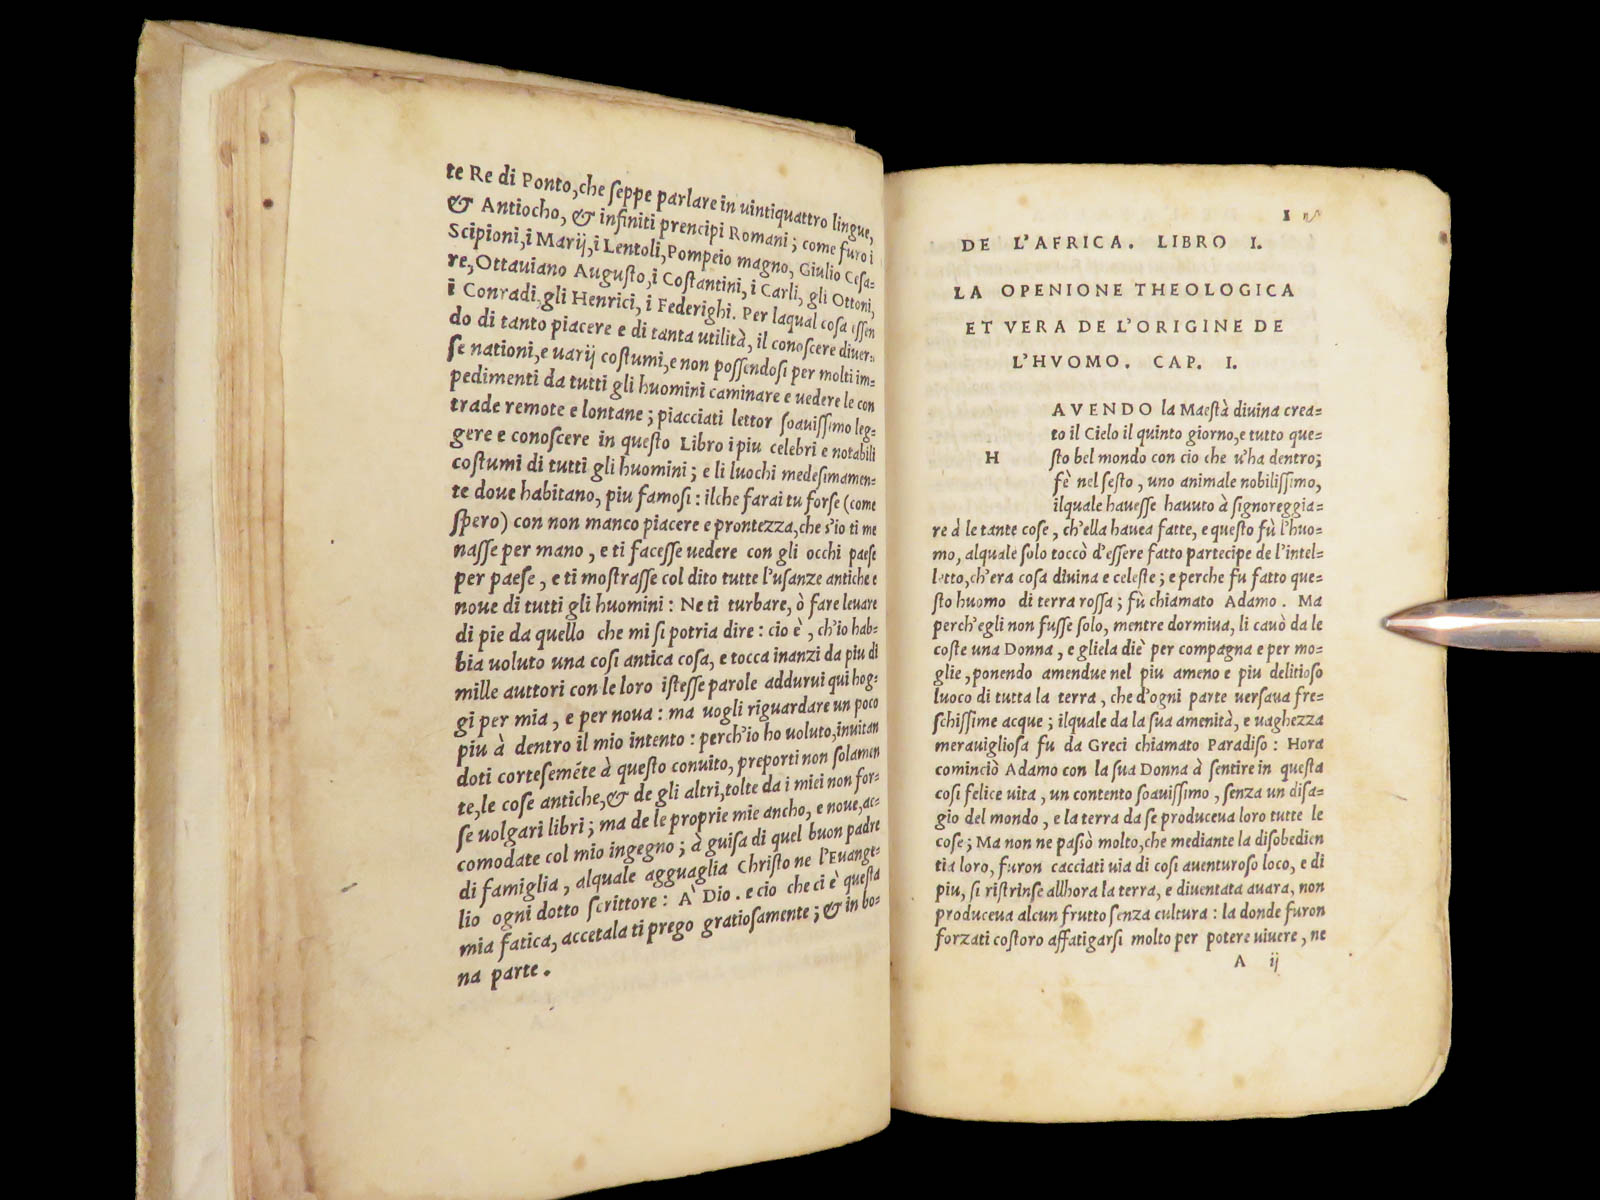 te Re di Ponto, che ſeppe parlare in uintiquattro lingue,
& Antiocho, & infiniti prencipi Romani; come furo i
Scipioni, i Marij, i Lentoli, Pompeio magno, Giulio Ceſa-
re, Ottauiano Auguſto, i Coſtantini, i Carli, gli Ottoni,
i Conradi, gli Henrici, i Federighi. Per laqual coſa eſſen
do di tanto piacere e di tanta utilità, il conoſcere diuer-
ſe nationi, e uarij coſtumi, e non poſſendoſi per molti im-
pedimenti da tutti gli huomini caminare e uedere le con
trade remote e lontane; piacciati lettor ſoauiſſimo leg-
gere e conoſcere in queſto Libro i piu celebri e notabili
coſtumi di tutti gli huomini; e li luochi medeſimamen-
te doue habitano, piu famoſi: ilche farai tu forſe (come
ſpero) con non manco piacere e prontezza, che s'io ti me
naſſe per mano, e ti faceſſe uedere con gli occhi paeſe
per paeſe, e ti moſtraſſe col dito tutte l'uſanze antiche e
noue di tutti gli huomini: Ne ti turbare, ò fare leuare
di pie da quello che mi ſi potria dire: cio è, ch'io hab-
bia uoluto una coſi antica coſa, e tocca inanzi da piu di
mille auttori con le loro iſteſſe parole addurui qui hog-
gi per mia, e per noua: ma uogli riguardare un poco
piu à dentro il mio intento: perch'io ho uoluto, inuitan
doti corteſeméte à queſto conuito, preporti non ſolamen
te, le coſe antiche, & de gli altri, tolte da i miei non for-
ſe uolgari libri; ma de le proprie mie ancho, e noue, ac-
comodate col mio ingegno; à guiſa di quel buon padre
di famiglia, alquale agguaglia Chriſto ne l'Euange-
lio ogni dotto ſcrittore: A' Dio. e cio che ci è queſta
mia fatica, accetala ti prego gratioſamente; & in bo-
na parte.
1
DE L'AFRICA. LIBRO I.
LA OPENIONE THEOLOGICA
ET VERA DE L'ORIGINE DE
L'HVOMO. CAP. I.
HAVENDO la Maeſtà diuina crea-
to il Cielo il quinto giorno, e tutto que-
ſto bel mondo con cio che u'ha dentro;
fè nel ſeſto, uno animale nobiliſſimo,
ilquale haueſſe hauuto à ſignoreggia-
re à le tante coſe, ch'ella hauea fatte, e queſto fù l'huo-
mo, alquale ſolo toccò d'eſſere fatto partecipe de l'intel-
letto, ch'era coſa diuina e celeſte; e perche fu fatto que-
ſto huomo di terra roſſa; fù chiamato Adamo. Ma
perch'egli non fuſſe ſolo, mentre dormiua, li cauò da le
coſte una Donna, e gliela diè per compagna e per mo-
glie, ponendo amendue nel piu ameno e piu delitioſo
luoco di tutta la terra, che d'ogni parte uerſaua fre-
ſchiſſime acque; ilquale da la ſua amenità, e uaghezza
merauiglioſa fu da Greci chiamato Paradiſo: Hora
cominciò Adamo con la ſua Donna à ſentire in queſta
coſi felice uita, un contento ſoauiſſimo, ſenza un diſa-
gio del mondo, e la terra da ſe produceua loro tutte le
coſe; Ma non ne paſſò molto, che mediante la diſobedien
tia loro, furon cacciati uia di coſi auenturoſo loco, e di
piu, ſi riſtrinſe allhora la terra, e diuentata auara, non
produceua alcun frutto ſenza cultura: la donde furon
forzati coſtoro affatigarſi molto per potere uiuere, ne
A ij